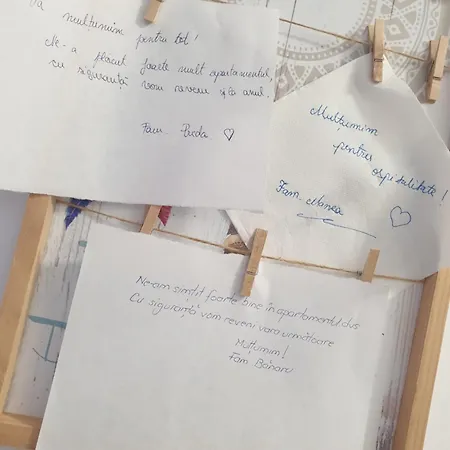 Vă mulțumim pentru tot!
Ne-a plăcut foarte mult apartamentul,
cu siguranță vom reveni și la anul.
Fam.
Mulțumim
pentru
ospitalitate!
Fam. Manea
Ne-am simțit foarte bine în apartamentul dvs
Cu siguranță vom reveni vara următoare
Mulțumim!
Fam Bănaru